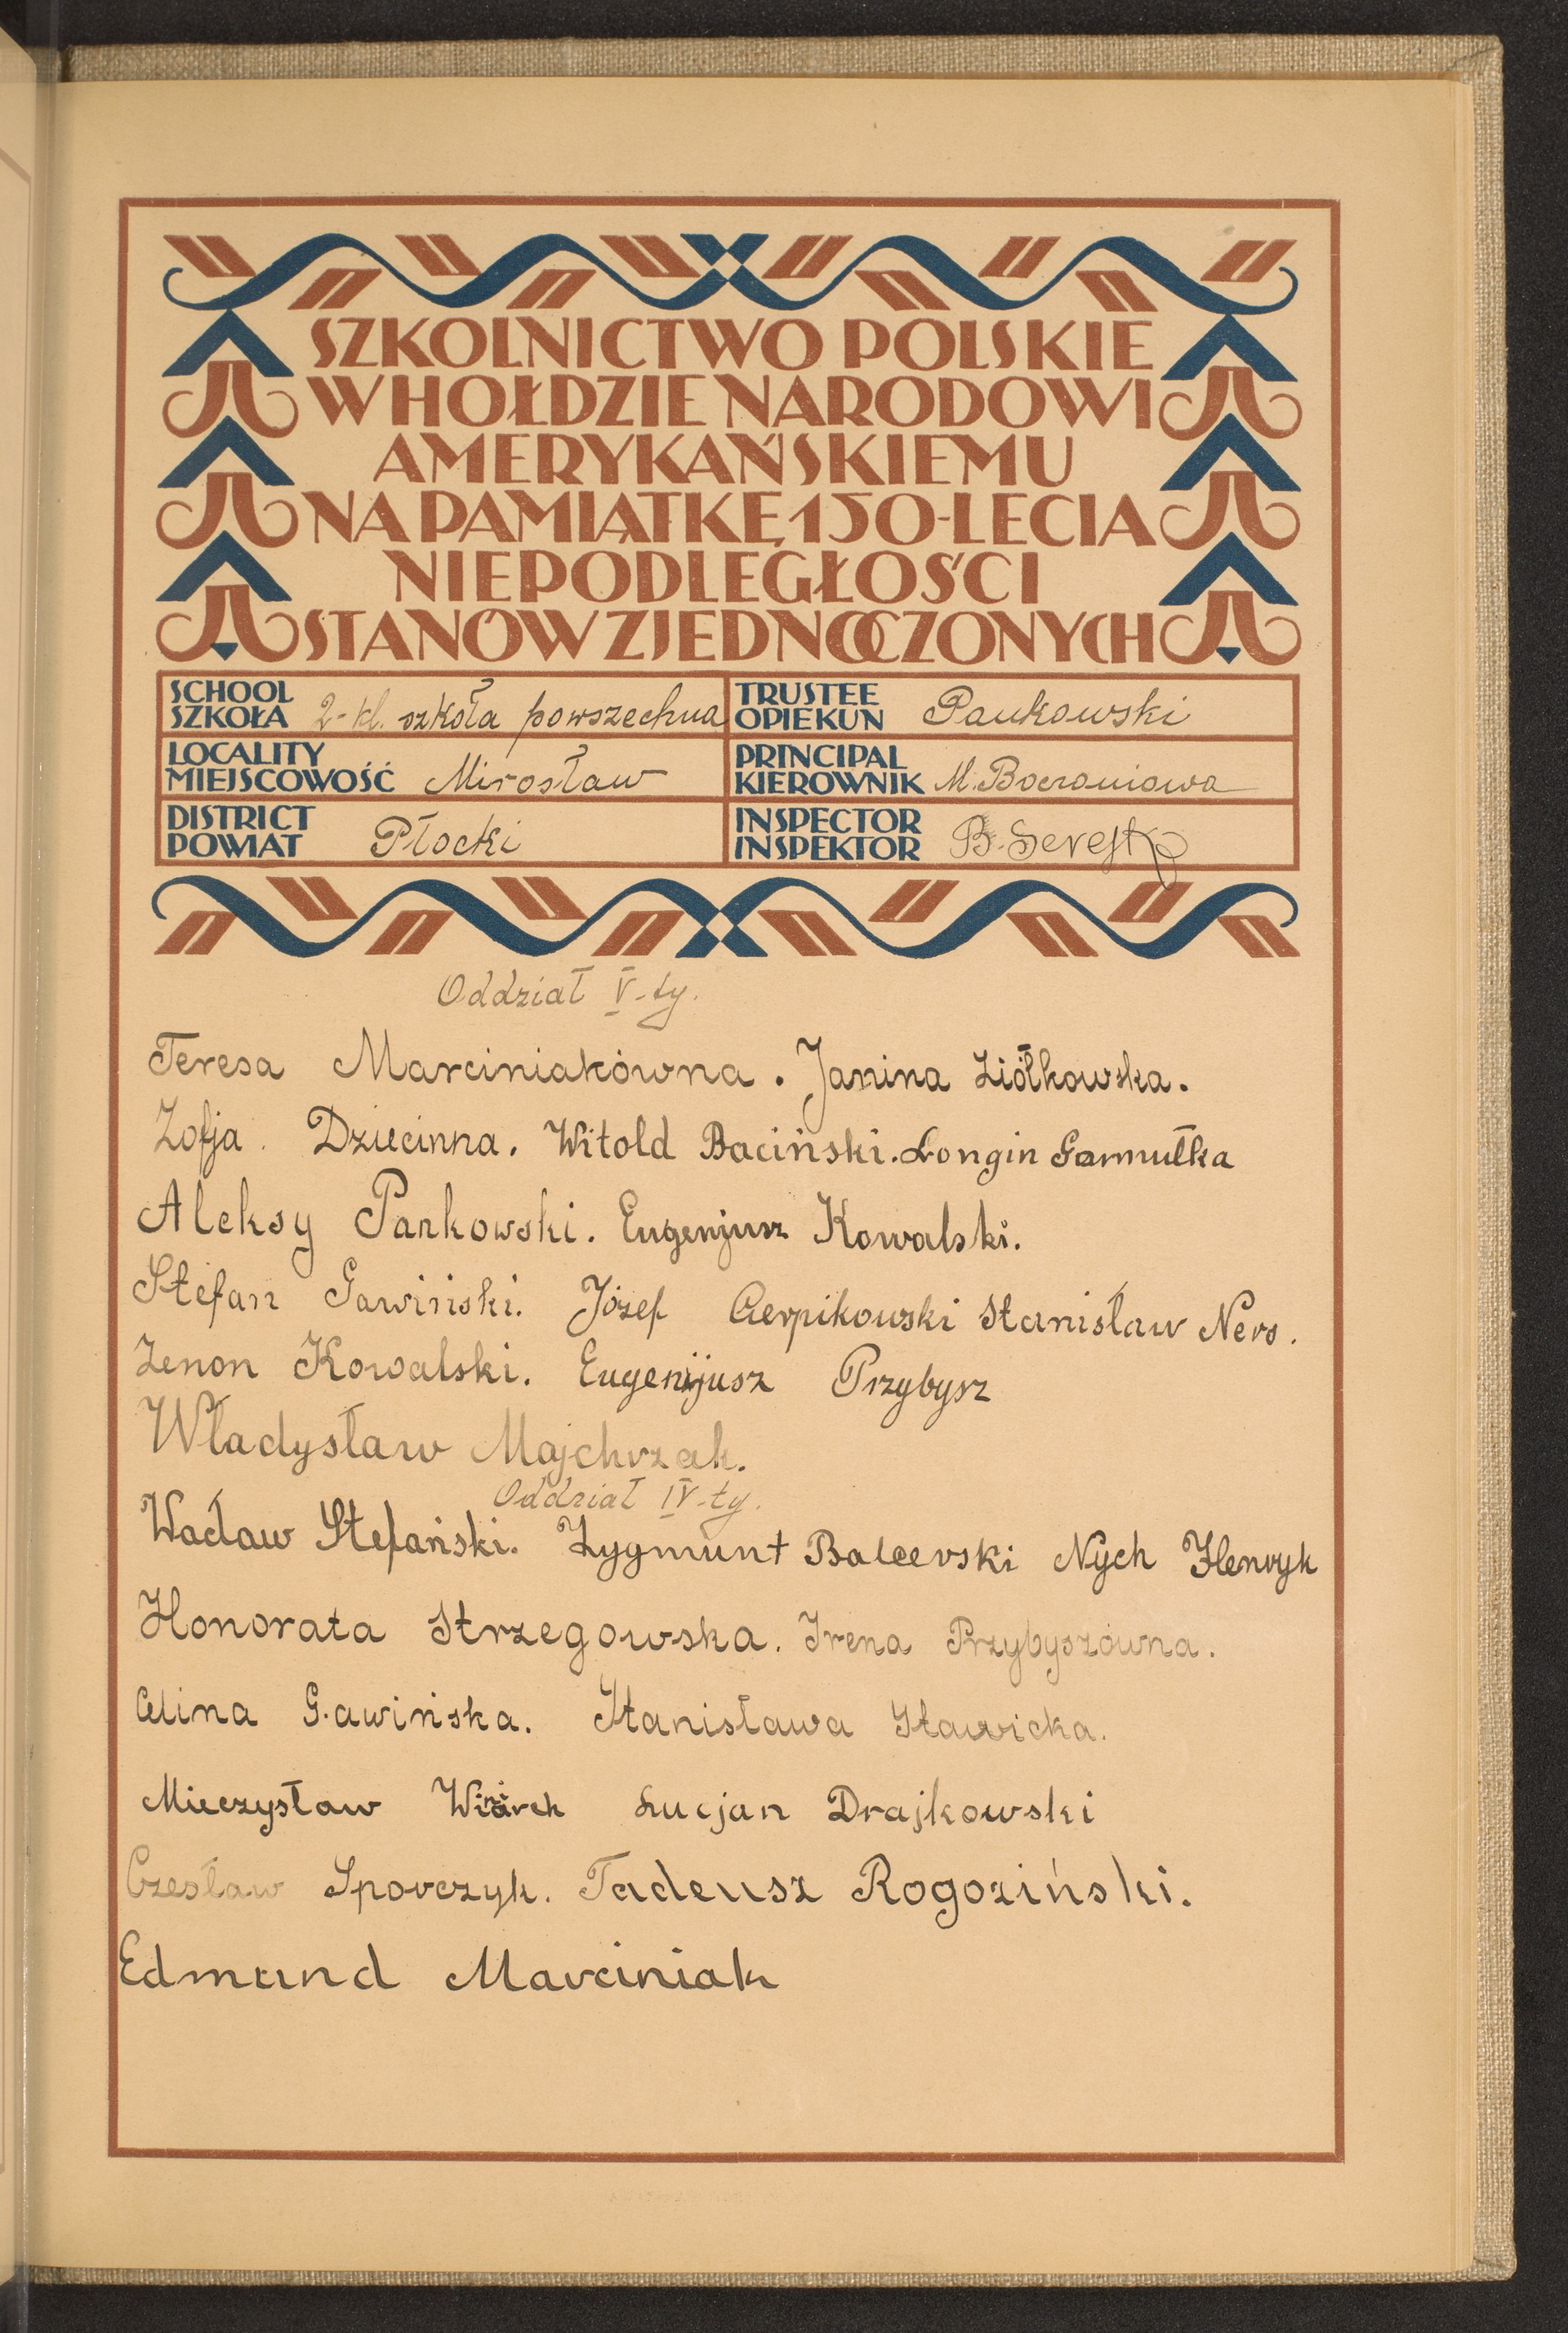 SZKOLNICTWO POLSKIE
W HOŁDZIE NARODOWI
AMERYKAŃSKIEMU
NA PAMIĄTKĘ 150-LECIA
NIEPODLEGŁOŚCI
STANÓW ZJEDNOCZONYCH
SCHOOL
SZKOŁA 2-kl. szkoła powszechna
TRUSTEE
OPIEKUN Pankowski
LOCALITY
MIEJSCOWOŚĆ Mirosław
PRINCIPAL
KIEROWNIK M.
DISTRICT
POWIAT Płocki
INSPECTOR
INSPEKTOR B.
Oddział V-ty.
Teresa Marciniakówna. Janina Ziółkowska.
Zofja Dziecinna. Witold Baciński. Longin Garmułka
Aleksy Pankowski. Eugenjusz Kowalski.
Stefan Gawiński. Józef Cierpikowski Stanisław Ners.
Zenon Kowalski. Eugenijusz Przybysz
Władysław Majchrzak.
Oddział IV-ty.
Wacław Stefański. Zygmunt Balcerski Nych Henryk
Honorata Strzegowska. Irena Przybyszówna.
Celina Gawińska. Stanisława Sławicka.
Mieczysław Lucjan Drajkowski
Czesław Sporczyk. Tadeusz Rogoziński.
Edmund Marciniak